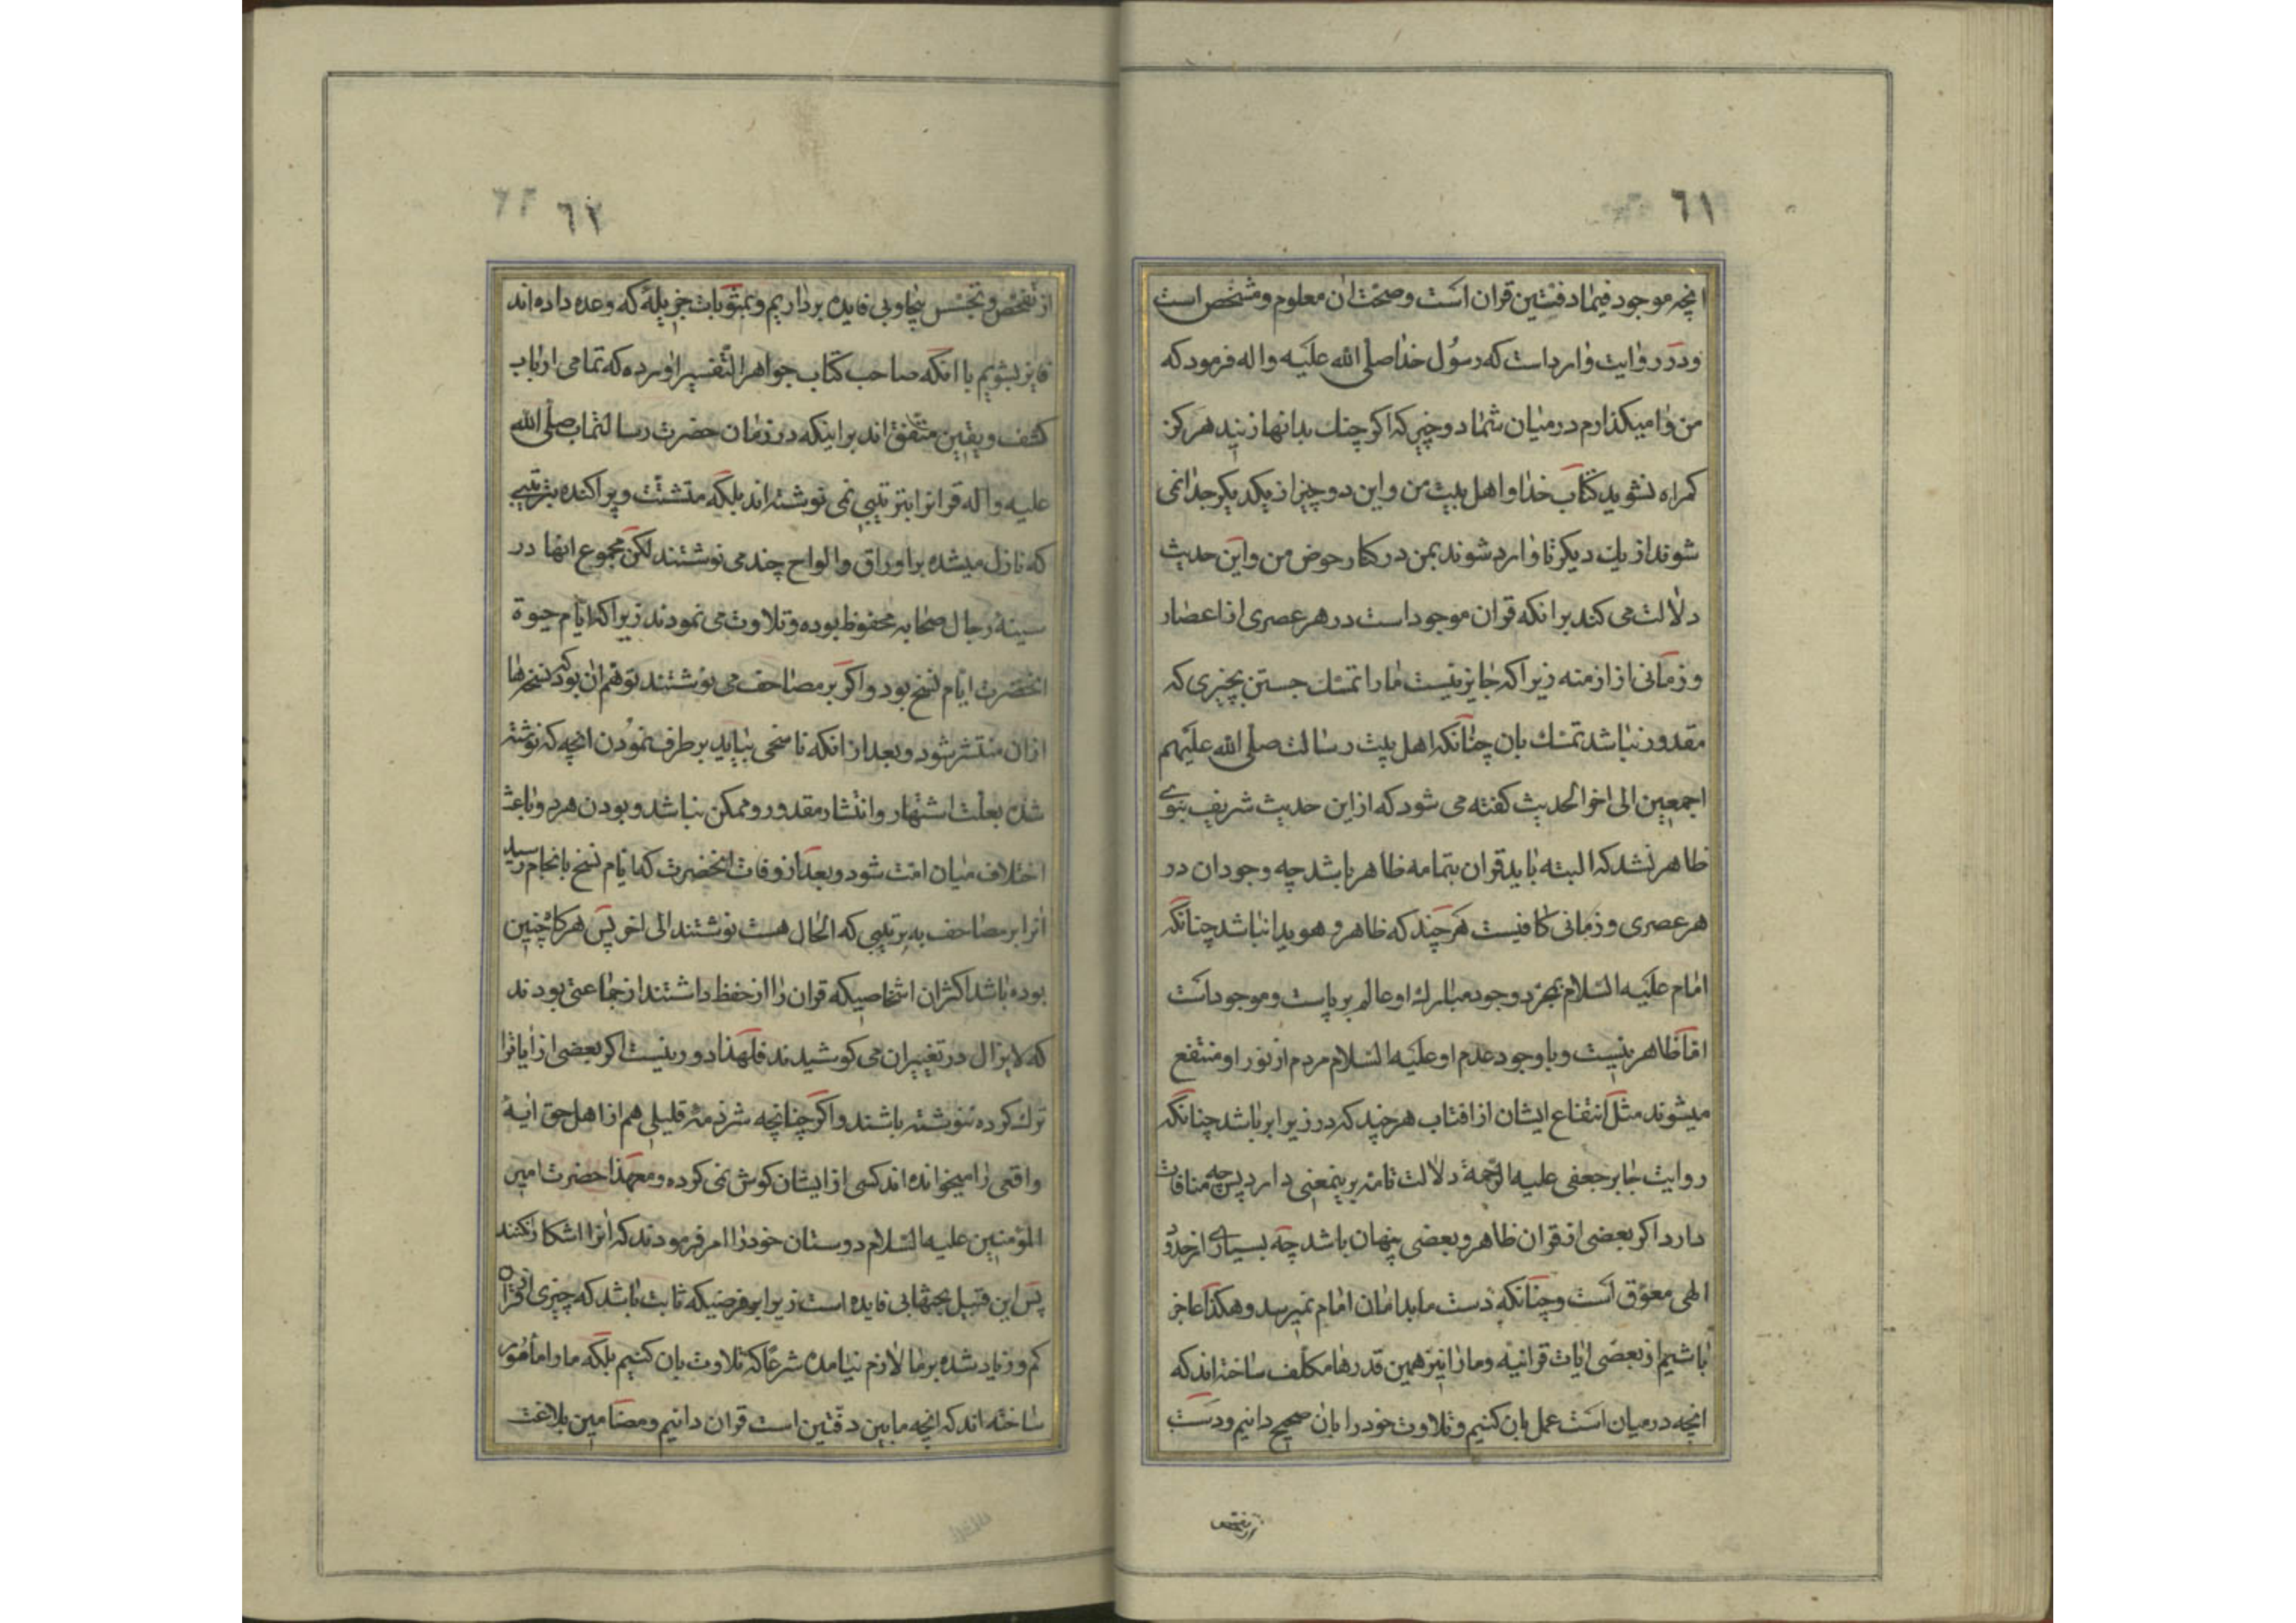 ٦١
انچه موجود فیما دفتین قران است و صحت ان معلوم و مشخص است
و در روایت وارد است که رسول خدا صلی الله علیه واله فرمود که
من وا میکذارم در میان شما دو چیز که اکر چنك بدانها زنید هرکز
کمراه نشوید کتاب خدا و اهل بیت من و این دو چیز از یکدیکر جدا نمی
شوند از یك دیکر تا وارد شوند بمن در کنار حوض من و این حدیث
دلالت می کند برانکه قران موجود است در هر عصری از اعصار
و زمانی از ازمنه زیرا که جایز نیست ما را تمسك جستن بچیزی که
مقدور نباشد تمسك بان چنانکه اهل بیت رسالت صلی الله علیهم
اجمعین الی اخر الحدیث کفته می شود که از این حدیث شریف نبوی
ظاهر نشد که البته باید قران بتمامه ظاهر باشد چه وجود ان در
هر عصری و زمانی کافیست هر چند که ظاهر و هویدا نباشد چنانکه
امام علیه السلام بمجرد وجود مبارك او عالم بر پاست و موجود است
اما ظاهر نیست و با وجود عدم او علیه السلام مردم از نور او منتفع
میشوند مثل انتفاع ایشان از افتاب هر چند که در زیر ابر باشد چنانکه
روایت جابر جعفی علیه الرحمة دلالت تامه برینمعنی دارد پس چه منافات
دارد اکر بعضی از قران ظاهر و بعضی پنهان باشد چه بسیاری از حدود
الهی معوق است و چنانکه دست ما بدامان امام نمیرسد و هکذا عاجز
باشیم از بعضی ایات قرانیه و ما را نیز همین قدرها مکلف ساخته اند که
انچه در میان است عمل بان کنیم و تلاوت خود را بان صحیح دانیم و دست
از تفحص
٦٢ ٦٢
از تفحص و تجسس بیجا و بی فایده برداریم و بمثوبات جزیله که وعده داده اند
فایز بشویم با انکه صاحب کتاب جواهر التفسیر اورده که تمامی ارباب
کشف و یقین متفق اند بر اینکه در زمان حضرت رسالتماب صلی الله
علیه واله قرانرا بترتیبی نمی نوشته اند بلکه متشتت و پراکنده بترتیبی
که نازل میشده بر اوراق و الواح چند می نوشتند لکن مجموع انها در
سینهٔ رجال صحابه محفوظ بوده و تلاوت می نمودند زیرا که ایام حیوة
انحضرت ایام نسخ بود و اکر بر مصاحف می نوشتند توهم ان بود که نسخها
ازان منتشر شود و بعد از انکه ناسخی بیاید بر طرف نمودن انچه که نوشته
شده بعلت اشتهار و انتشار مقدور و ممکن نباشد و بودن هر دو باعث
اختلاف میان امت شود و بعد از وفات انحضرت که ایام نسخ بانجام رسید
انرا بر مصاحف به ترتیبی که الحال هست نوشتند الی اخر پس هرکاه چنین
بوده باشد اکثر ان اشخاصیکه قران را از حفظ داشتند از جماعتی بودند
که لایزال در تغییر ان می کوشیدند فلهذا دور نیست اکر بعضی از ایاترا
ترك کرده ننوشته باشند و اکر چنانچه شرذمه قلیلی هم از اهل حق ایهٔ
واقعی را میخوانده اند کسی از ایشان کوش نمی کرده و معهذا حضرت امیر
المؤمنین علیه السلام دوستان خود را امر فرمودند که انرا اشکار نکنند
پس این قبیل بحثها بی فایده است زیرا بر فرضیکه ثابت باشد که چیزی از قران
کم و زیاد شده بر ما لازم نیامده شرعا که تلاوت بان کنیم بلکه ما را مأمور
ساخته اند که انچه ما بین دفتین است قران دانیم و مضامین بلاغت